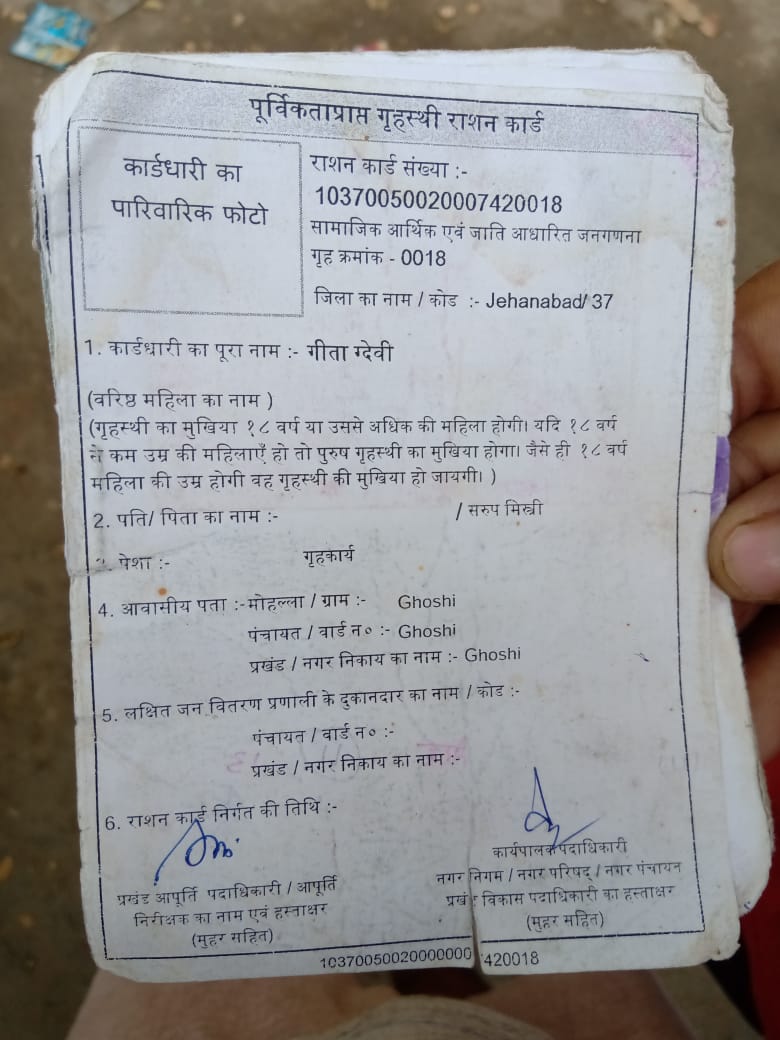 पूर्विकताप्राप्त गृहस्थी राशन कार्ड
कार्डधारी का
पारिवारिक फोटो
राशन कार्ड संख्या :-
10370050020007420018
सामाजिक आर्थिक एवं जाति आधारित जनगणना
गृह क्रमांक - 0018
जिला का नाम / कोड :- Jehanabad/ 37
1. कार्डधारी का पूरा नाम :- गीता ग्देवी
(वरिष्ठ महिला का नाम )
(गृहस्थी का मुखिया १८ वर्ष या उससे अधिक की महिला होगी। यदि १८ वर्ष
से कम उम्र की महिलाएँ हो तो पुरुष गृहस्थी का मुखिया होगा। जैसे ही १८ वर्ष
महिला की उम्र होगी वह गृहस्थी की मुखिया हो जायगी। )
2. पति/ पिता का नाम :- / सरुप मिस्त्री
3. पेशा :- गृहकार्य
4. आवासीय पता :-मोहल्ला / ग्राम :- Ghoshi
पंचायत / वार्ड न० :- Ghoshi
प्रखंड / नगर निकाय का नाम :- Ghoshi
5. लक्षित जन वितरण प्रणाली के दुकानदार का नाम / कोड :-
पंचायत / वार्ड न० :-
प्रखंड / नगर निकाय का नाम :-
6. राशन कार्ड निर्गत की तिथि :-
प्रखंड आपूर्ति पदाधिकारी / आपूर्ति
निरीक्षक का नाम एवं हस्ताक्षर
(मुहर सहित)
कार्यपालक पदाधिकारी
नगर निगम / नगर परिषद् / नगर पंचायन
प्रखंड विकास पदाधिकारी का हस्ताक्षर
(मुहर सहित)
10370050020000000 420018